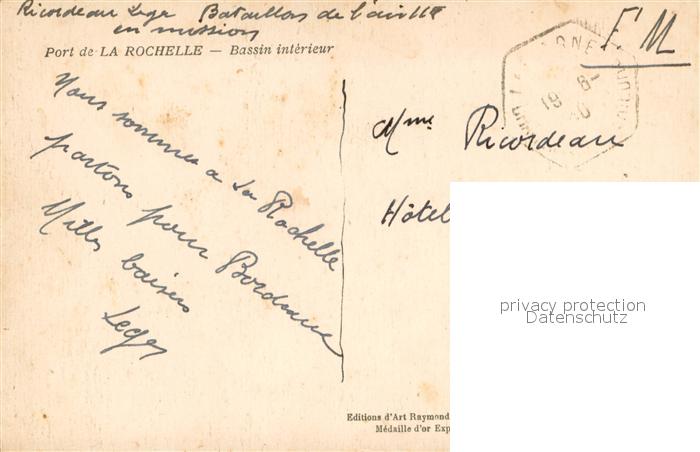 Ricordeau Leger Bataillon de l'air
en mission
Port de LA ROCHELLE — Bassin intérieur
F M
19 6-
Nous sommes a La Rochelle
partons pour Bordeaux
Milles baisers
Leger
Mme Ricordeau
Hôtel
privacy protection
Datenschutz
Editions d'Art Raymond
Médaille d'or Exp